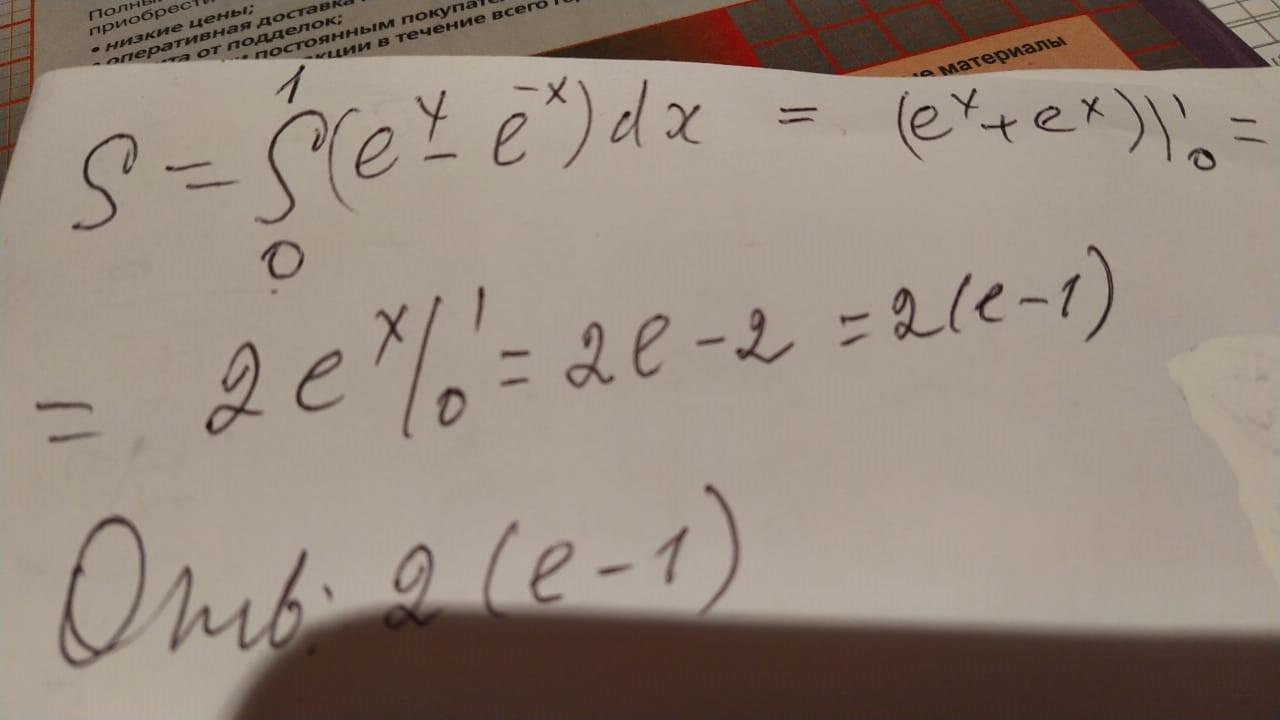 приобрести
• низкие цены;
• оперативная доставка
от подделок;
постоянным
в течение всего
материалы
S = ∫₀¹ (eˣ - e⁻ˣ) dx = (eˣ + eˣ)|₀¹ =
= 2eˣ|₀¹ = 2e - 2 = 2(e - 1)
Отв: 2 (e - 1)